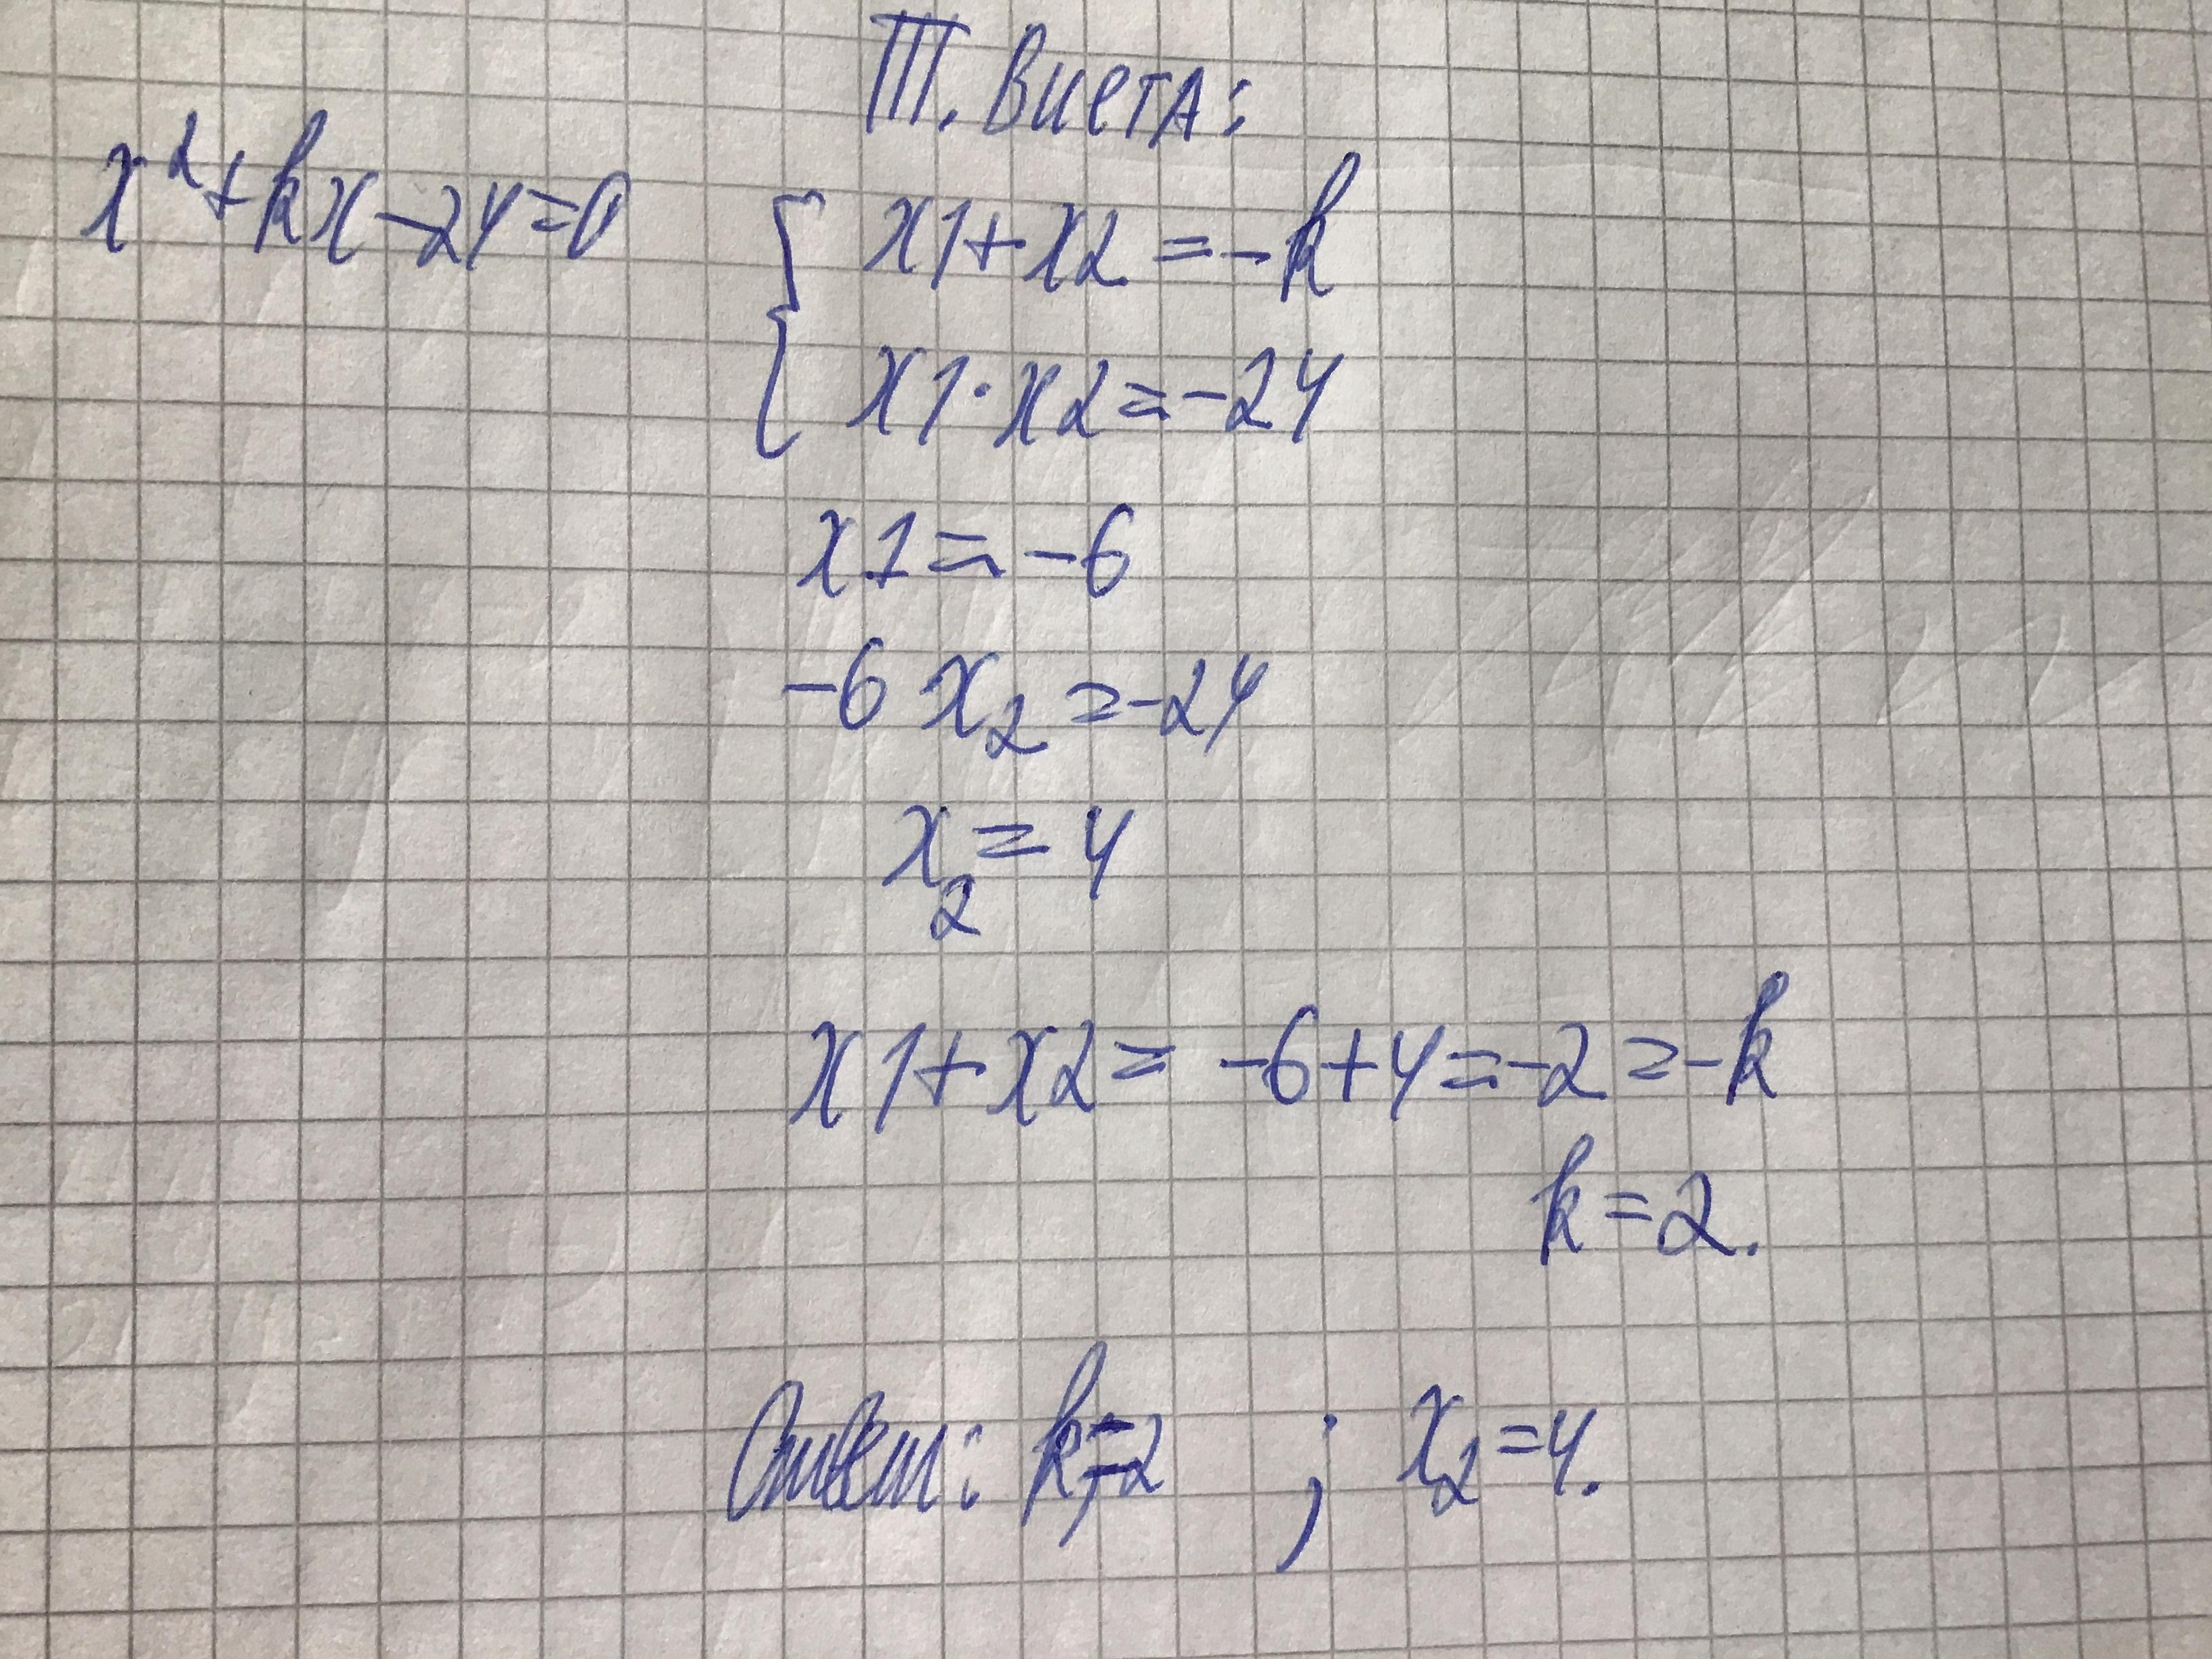 Т. Виета:
x²+kx-24=0
x1+x2=-k
x1·x2=-24
x1=-6
-6x₂=-24
x₂=4
x1+x2=-6+4=-2=-k
k=2.
Ответ: k=2 ; x₂=4.